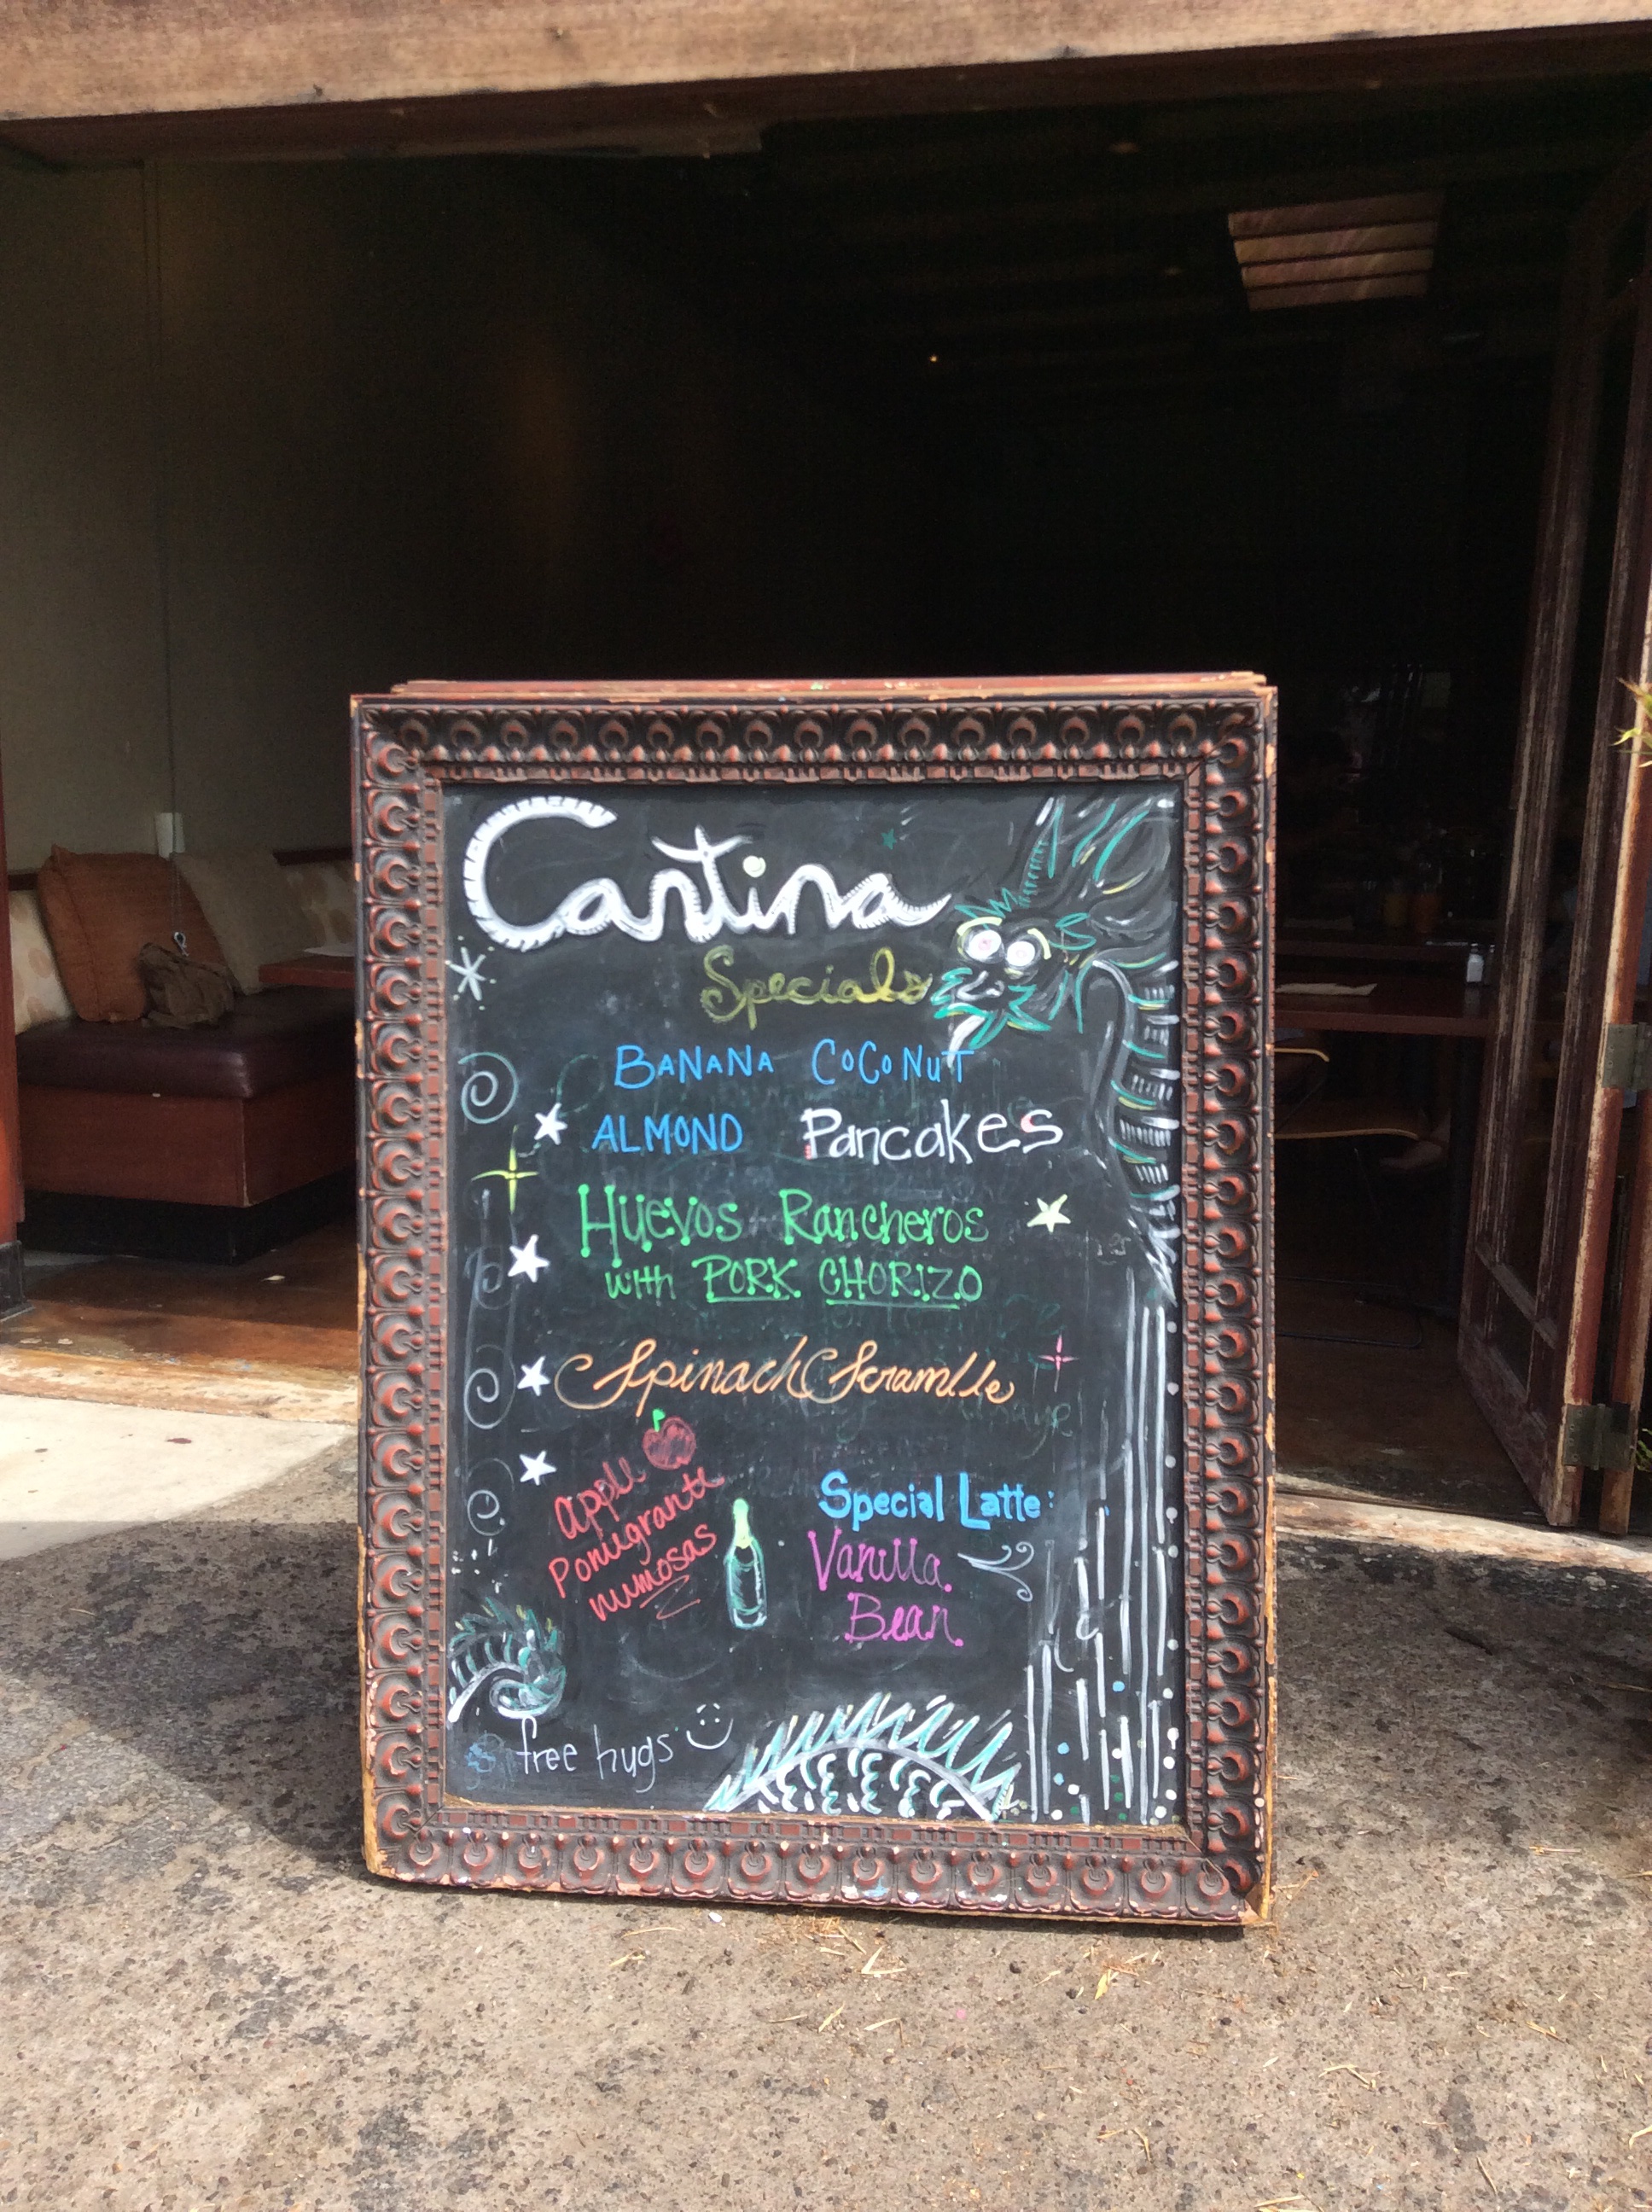 Cantina
Specials
BANANA COCONUT
ALMOND Pancakes
Huevos Rancheros
with PORK CHORIZO
Spinach Scramble
apple
Pomigrante
mimosas
Special Latte:
Vanilla
Bean
free hugs